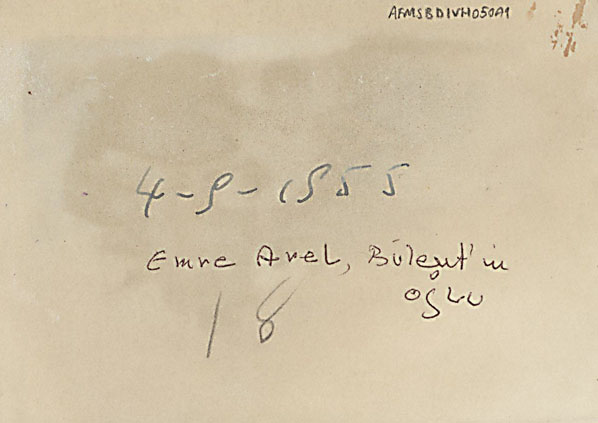 AFMSBDIVH050A9
4-9-1955
Emre Arel, Bülent'in
oğlu
18